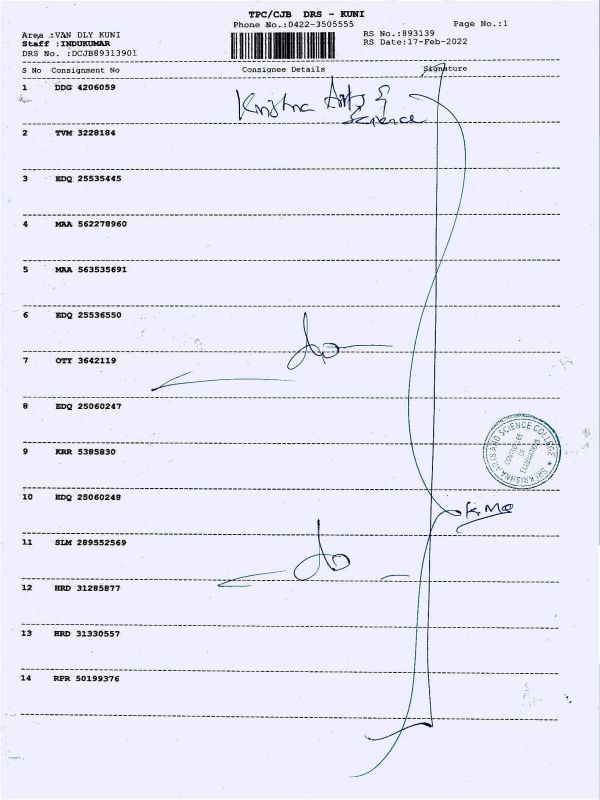 TPC/CJB DRS - KUNI
Phone No.:0422-3505555
Page No.:1
Area :VAN DLY KUNI
Staff :INDUKUMAR
DRS No. :DCJB89313901
RS No.:893139
RS Date:17-Feb-2022
S No Consignment No Consignee Details Signature
1 DDG 4206059
Krishna Arts &
Science
2 TVM 3228184
3 EDQ 25535445
4 MAA 562278960
5 MAA 563535691
6 EDQ 25536550
do
7 OTY 3642119
8 EDQ 25060247
9 KRR 5385830
SRI KRISHNA ARTS AND SCIENCE COLLEGE
CONTROLLER
OF
EXAMINATIONS
10 EDQ 25060248
11 SLM 289552569
do
12 HRD 31285877
13 HRD 31330557
14 RPR 50199376